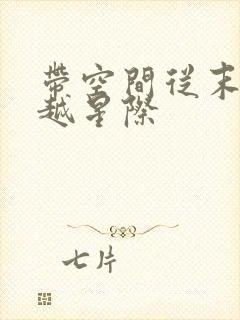 帶空間從末
越星際
七片